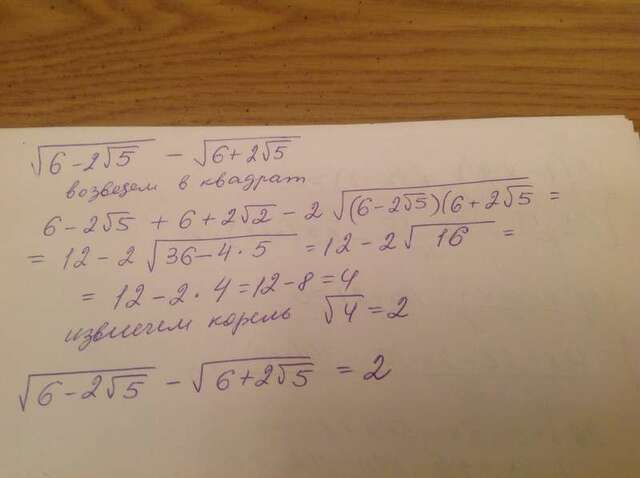 √(6 - 2√5) - √(6 + 2√5)
возведем в квадрат
6 - 2√5 + 6 + 2√2 - 2 √((6 - 2√5)(6 + 2√5) =
= 12 - 2 √(36 - 4 · 5) = 12 - 2 √16 =
= 12 - 2 · 4 = 12 - 8 = 4
извлечем корень √4 = 2
√(6 - 2√5) - √(6 + 2√5) = 2